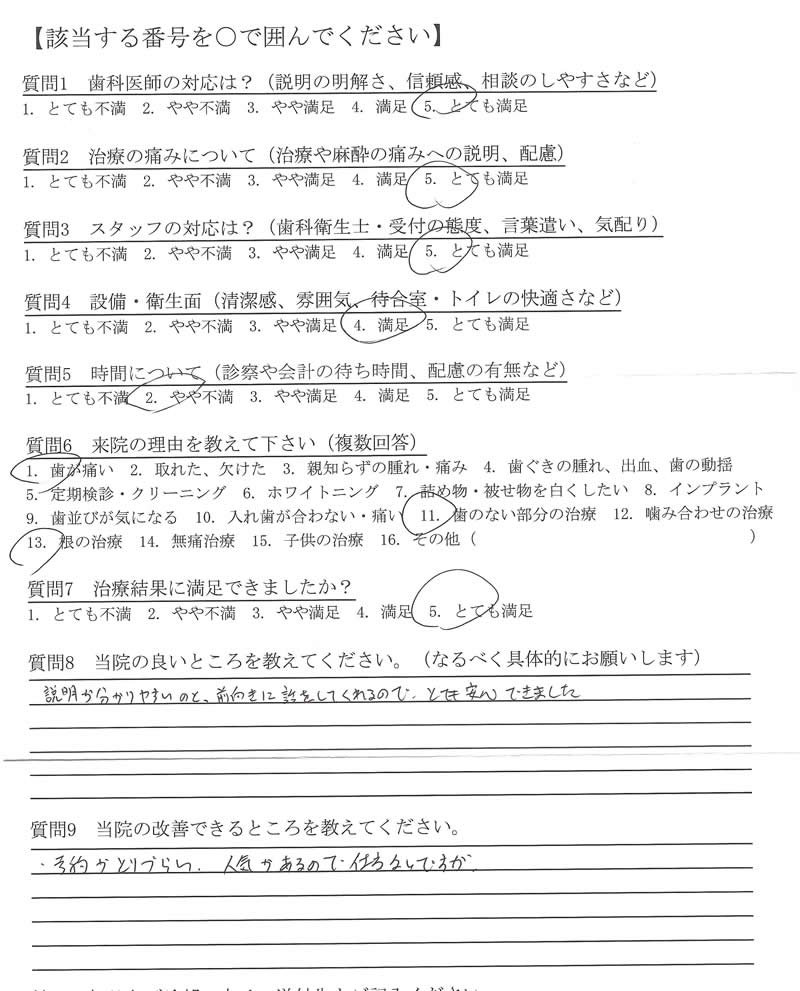 【該当する番号を○で囲んでください】
質問1　歯科医師の対応は？（説明の明解さ、信頼感、相談のしやすさなど）
1. とても不満　2. やや不満　3. やや満足　4. 満足　5. とても満足
質問2　治療の痛みについて（治療や麻酔の痛みへの説明、配慮）
1. とても不満　2. やや不満　3. やや満足　4. 満足　5. とても満足
質問3　スタッフの対応は？（歯科衛生士・受付の態度、言葉遣い、気配り）
1. とても不満　2. やや不満　3. やや満足　4. 満足　5. とても満足
質問4　設備・衛生面（清潔感、雰囲気、待合室・トイレの快適さなど）
1. とても不満　2. やや不満　3. やや満足　4. 満足　5. とても満足
質問5　時間について（診察や会計の待ち時間、配慮の有無など）
1. とても不満　2. やや不満　3. やや満足　4. 満足　5. とても満足
質問6　来院の理由を教えて下さい（複数回答）
1. 歯が痛い　2. 取れた、欠けた　3. 親知らずの腫れ・痛み　4. 歯ぐきの腫れ、出血、歯の動揺
5. 定期検診・クリーニング　6. ホワイトニング　7. 詰め物・被せ物を白くしたい　8. インプラント
9. 歯並びが気になる　10. 入れ歯が合わない・痛い　11. 歯のない部分の治療　12. 噛み合わせの治療
13. 根の治療　14. 無痛治療　15. 子供の治療　16. その他（　　　）
質問7　治療結果に満足できましたか？
1. とても不満　2. やや不満　3. やや満足　4. 満足　5. とても満足
質問8　当院の良いところを教えてください。（なるべく具体的にお願いします）
説明が分かりやすいのと、前向きに話をしてくれるので、とても安心できました
質問9　当院の改善できるところを教えてください。
・予約がとりづらい。人気があるので仕方ないですが。